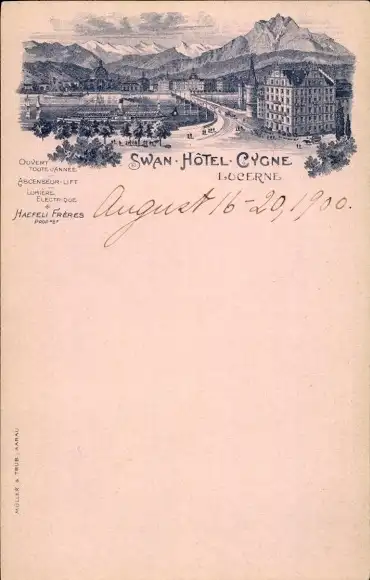 SWAN·HÔTEL·CYGNE
LUCERNE
OUVERT
TOUTE L'ANNÉE
ASCENSEUR-LIFT
LUMIÈRE
ELECTRIQUE
HAEFELI FRÈRES
August 16-20, 1900.
MÜLLER & TRÜB, AARAU